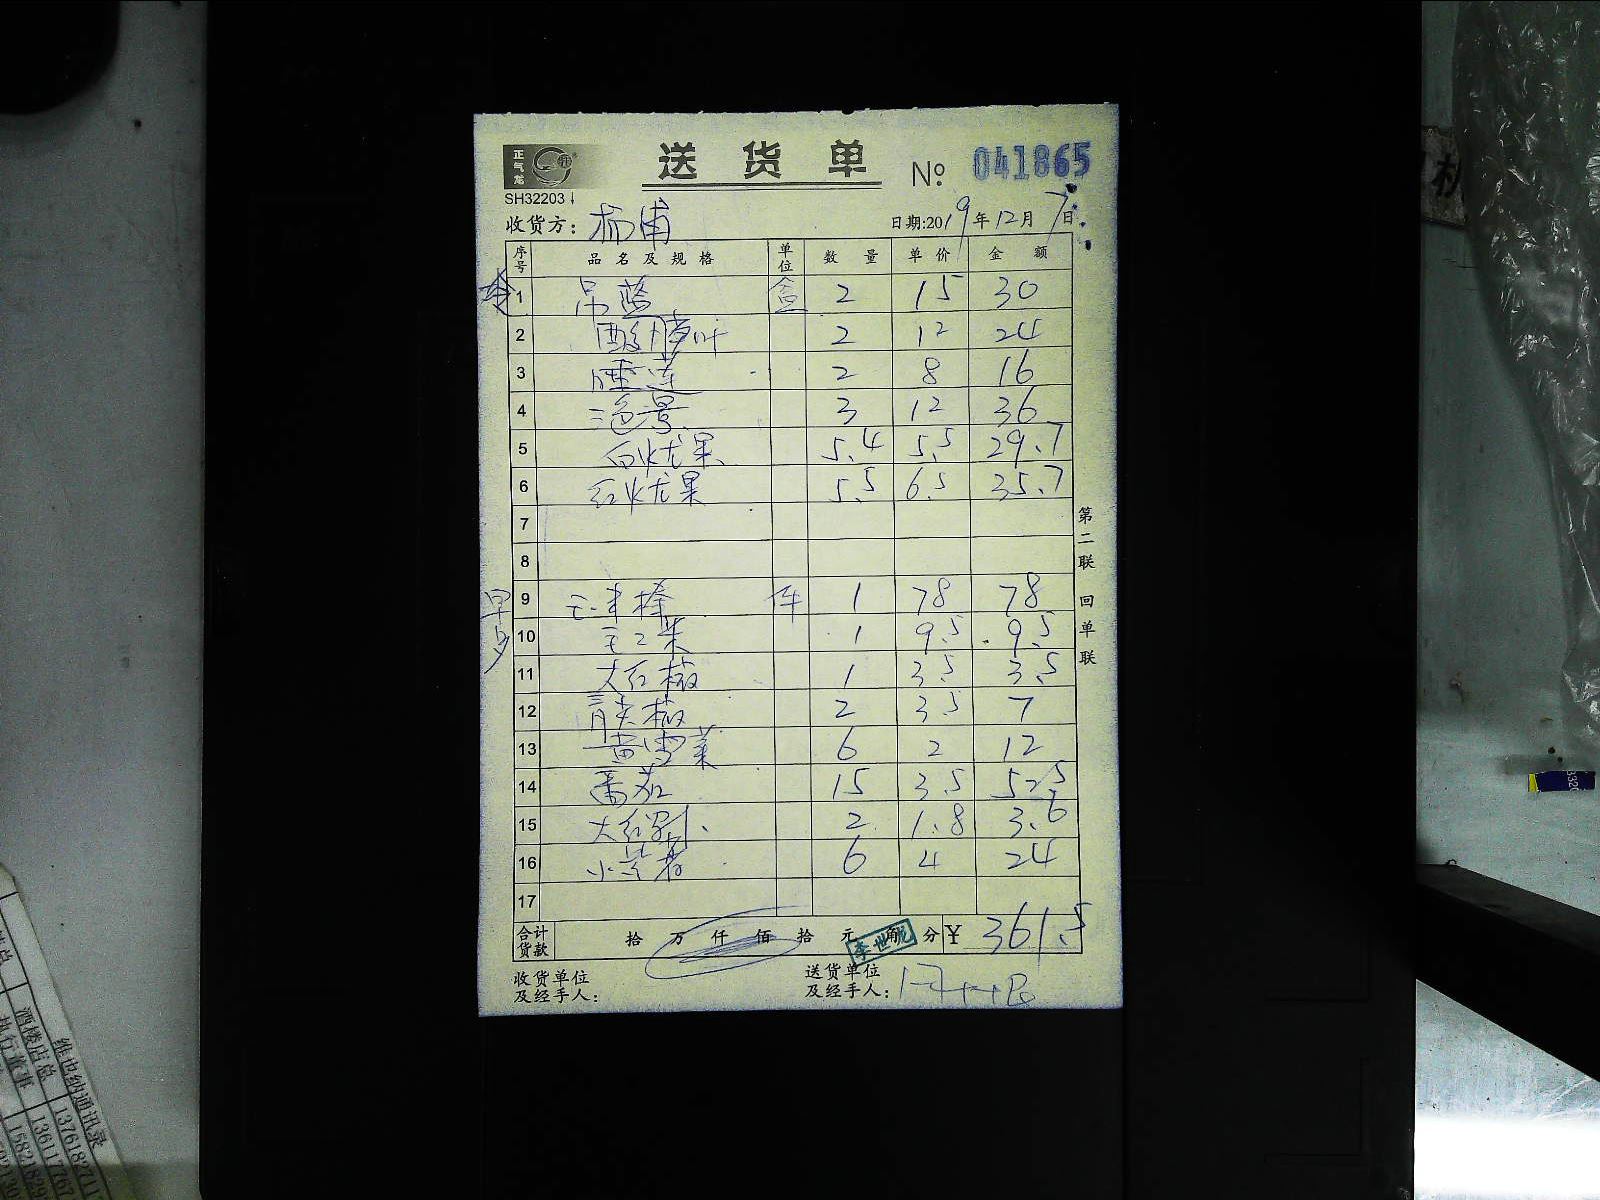 正气龙
送货单 № 041865
SH32203
收货方： 杨浦 日期:2019年12月7日
序号 品名及规格 单位 数量 单价 金额
1 吊蓝 盒 2 15 30
2 叶 2 12 24
3 睡莲 2 8 16
4 三色景 3 12 36
5 白火尤果 5.4 5.5 29.7
6 红火尤果 5.5 6.5 35.7
7
8
早夕
9 1 78 78
10 1 9.5 9.5
11 大红椒 1 3.5 3.5
12 青尖椒 2 3.5 7
13 6 2 12
14 番茄 15 3.5 52.5
15 大红 2 1.8 3.6
16 小 6 4 24
17
合计货款 拾 万 仟 佰 拾 元 角 分 ¥ 361.5
李世龙
收货单位及经手人：
送货单位及经手人：
第二联 回单联
维也纳通讯录
酒楼店总 1376182711
执行董事 136117767